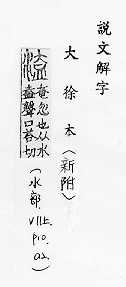 說文解字
大徐本〈新附〉
溘奄忽也从水
盍聲口荅切
(水部. V11上. P10. a2.)